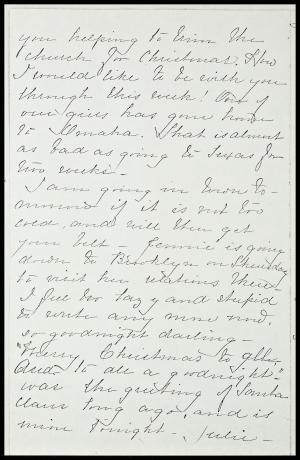 you helping to trim the
church for Christmas. How
I would like to be with you
through this week! One of
our girls has gone home
to Omaha. That is almost
as bad as going to Texas for
two weeks -
I am going in town to-
morrow if it is not too
cold, and will then get
your belt - Jennie is going
down to Brooklyn on Thursday
to visit her relations there
I feel too lazy and stupid
to write any more now,
so goodnight darling -
"Merry Christmas to all,
And to all a goodnight"
was the greeting of Santa
Claus long ago, and is
mine tonight - Julie -